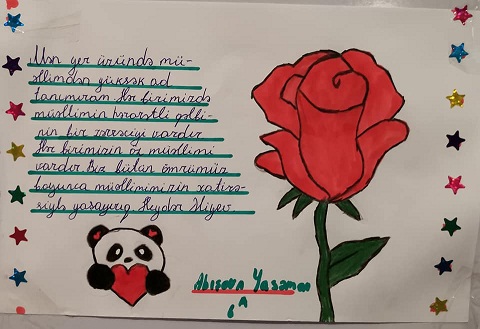 Mən yer üzündə mü-
əllimdən yüksək ad
tanımıram Hər birimizdə
müəllimin hərarətli qəlbi-
nin bir zərrəciyi vardır
Hər birimizin öz müəllimi
vardır Biz bütün ömrümüz
boyunca müəllimimizin xatirə-
siylə yaşayırıq Heydər Əliyev.
Abışova Yasəmən
6 A